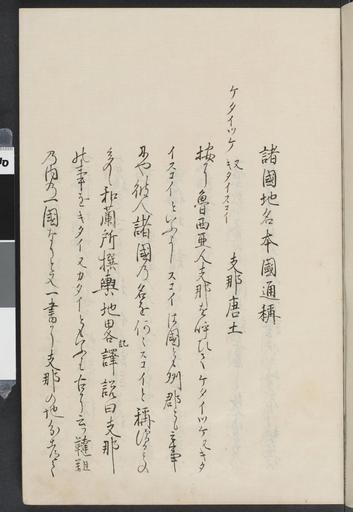 諸國地名本國通稱
ケタイツケ キタイスコイ 支那唐土
按ニ魯西亜人支那を呼ひてケタイツケ又キタ
イスコイといふスコイは国とも州郡とも云事
にや彼人諸國乃名を何スコイと稱する
和蘭所撰輿地畧記譯説曰支那
此事をキタイ又カタイともいふ古より云韃靼
乃内乃一國なりと又一書に支那の地